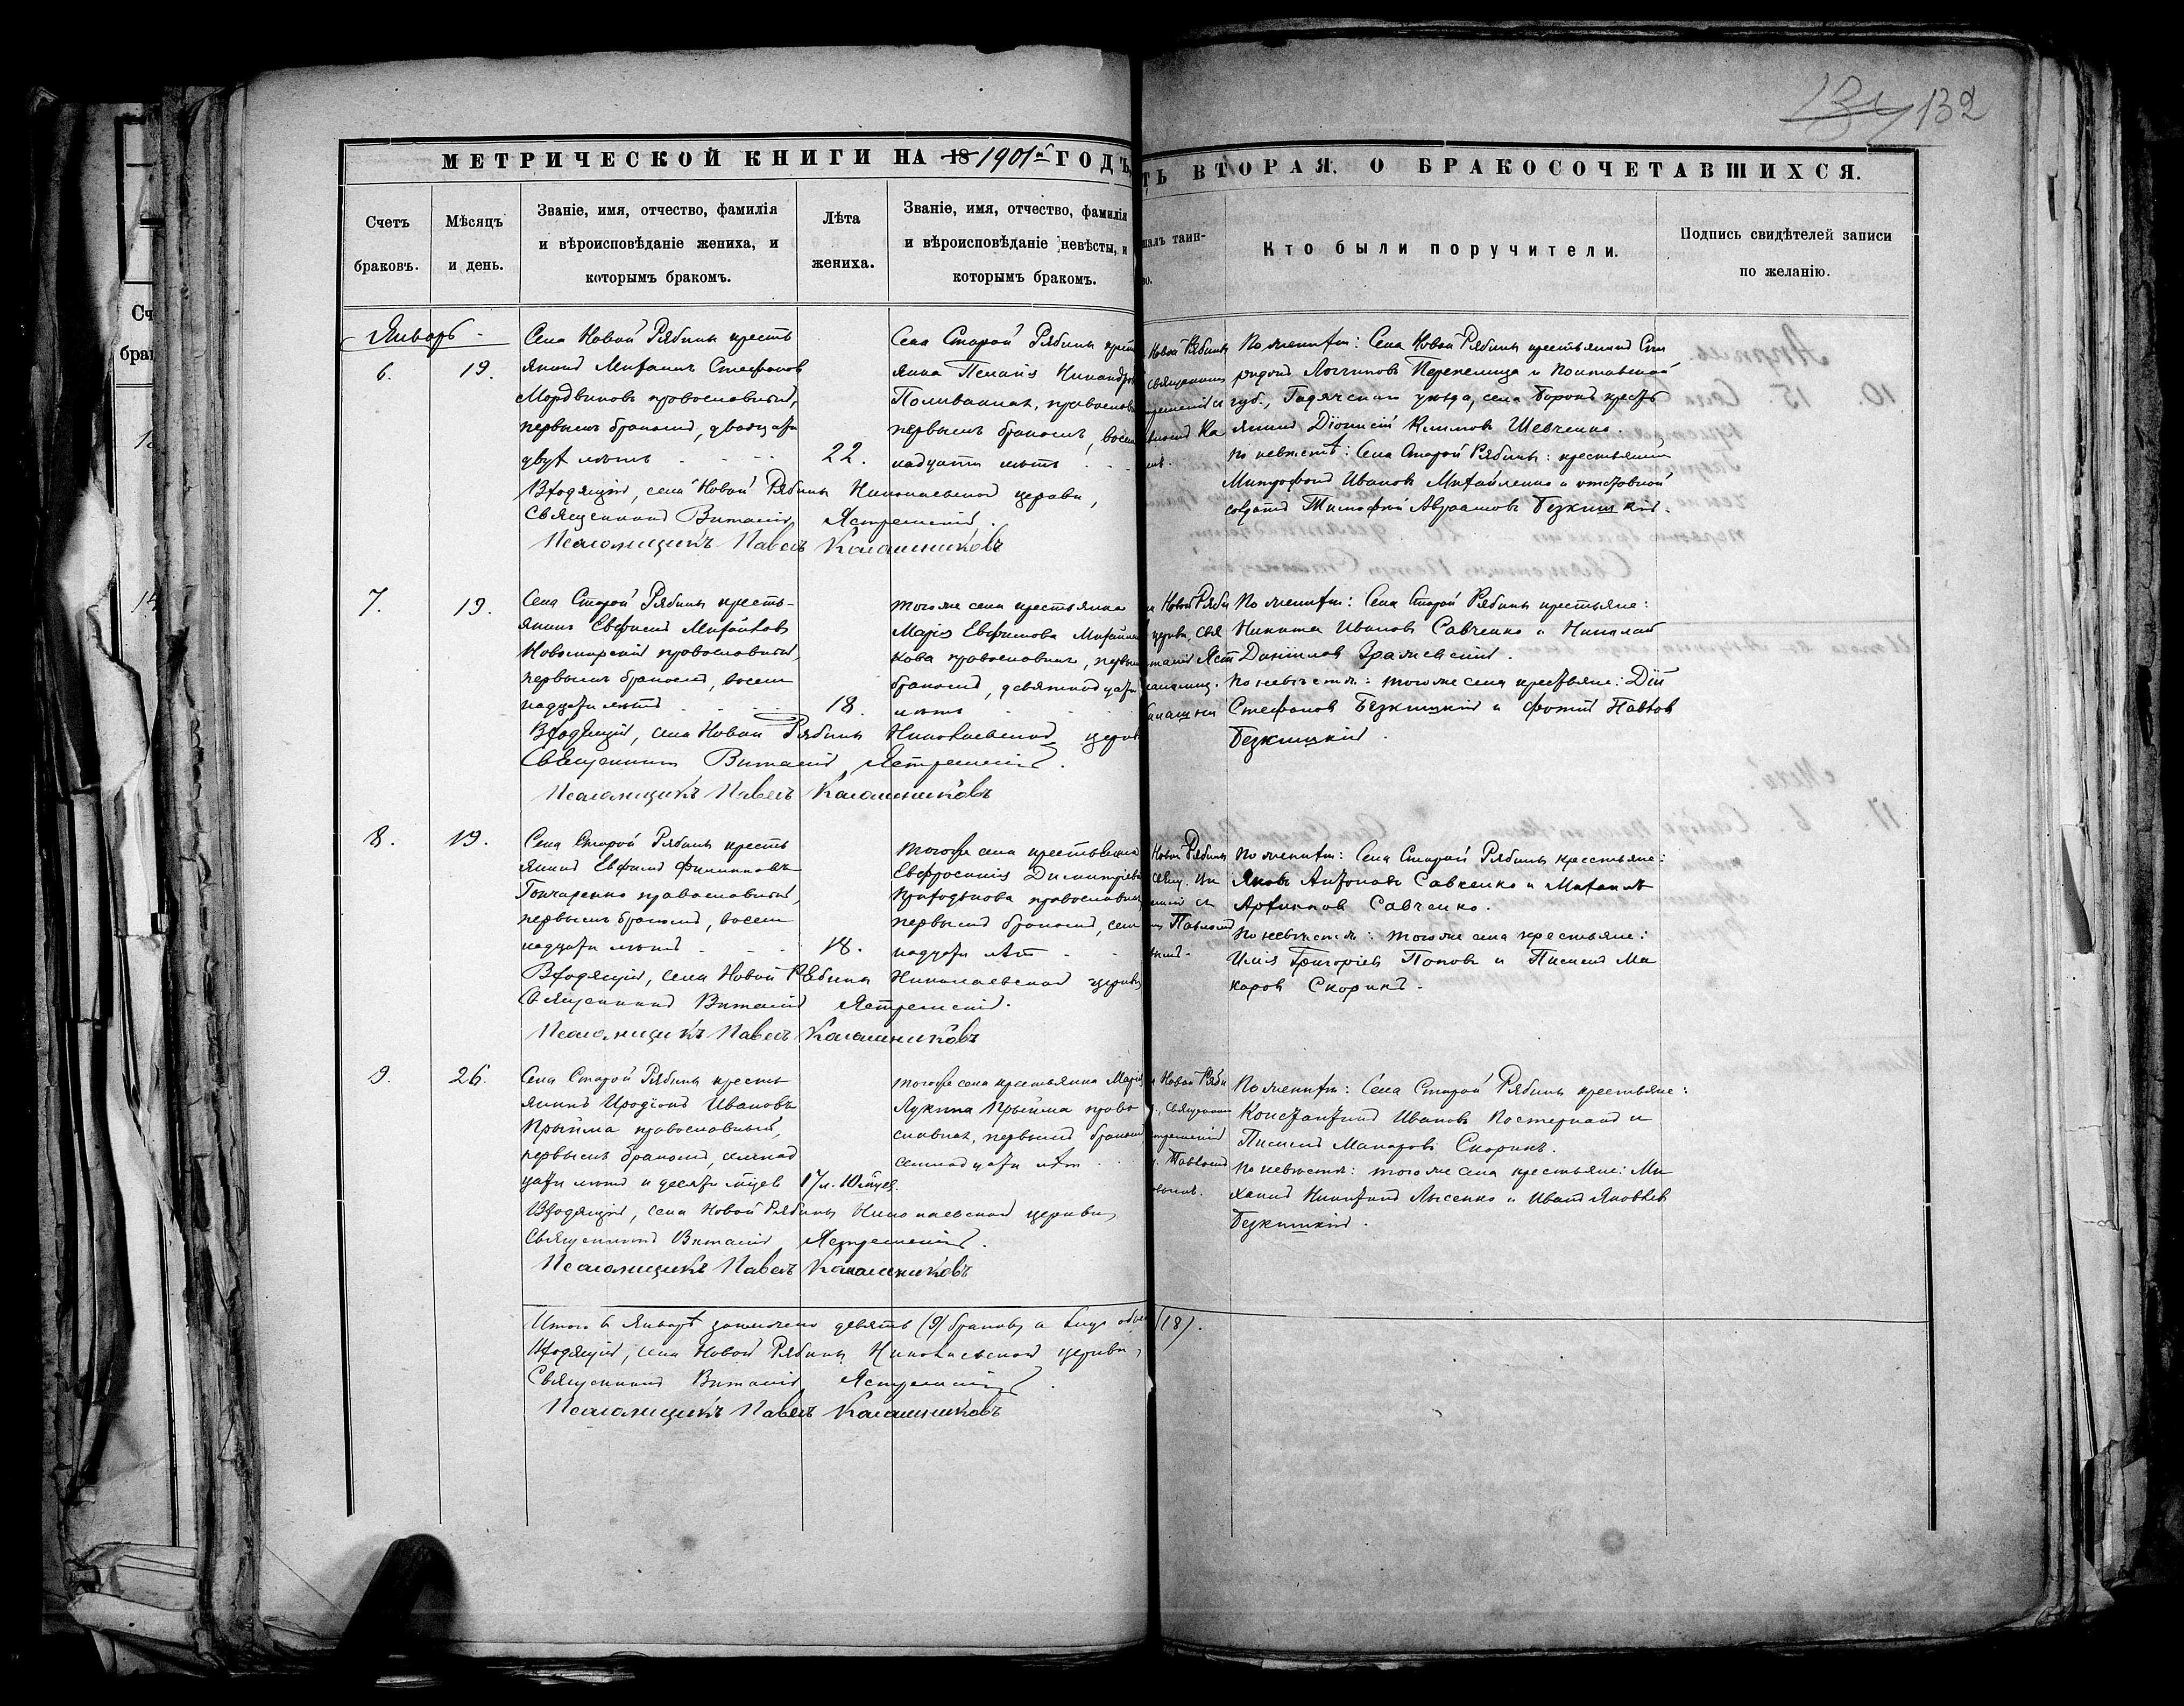 132
МЕТРИЧЕСКОЙ КНИГИ НА 18 1901й ГОДЪ,
ТЬ ВТОРАЯ, О БРАКОСОЧЕТАВШИХСЯ.
Счетъ
браковъ.
Мѣсяцъ
и день.
Званіе, имя, отчество, фамилія
и вѣроисповѣданіе жениха, и
которымъ бракомъ.
Лѣта
жениха.
Званіе, имя, отчество, фамилія
и вѣроисповѣданіе невѣсты, и
которымъ бракомъ.
шалъ таин-
во.
Кто были поручители.
Подпись свидѣтелей записи
по желанію.
Январь -
6.
19.
Села Новой Рябины кресть
янинъ Михаилъ Стефановъ
Мордвиновъ православный,
первымъ бракомъ, двадцати
двухъ лѣтъ
22.
Села Старой Рябины кресть
янка Пелагія Никандров
Поливаная, православн
первымъ бракомъ, восем
надцати лѣтъ
Новой Рябины
священникъ
По женихѣ: Села Новой Рябины крестьянинъ Спи
ридонъ Логгиновъ Перепелица и Полтавской
губ., Гадячскаго уѣзда, села Боронъ кресть
янинъ Діонисій Климовъ Шевченко.
По невѣстѣ: Села Старой Рябины: крестьянинъ
Митрофанъ Ивановъ Михайленко и отставной
солдатъ Тимофей Авраамовъ Безкишкій.
Входящій, села Новой Рябины Николаевской церкви,
Священникъ Виталій Ястремскій.
Псаломщикъ Павелъ Калашниковъ
7.
19.
Села Старой Рябины кресть-
янинъ Евфимъ Михайловъ
Новомирскій православный,
первымъ бракомъ, восем
надцати лѣтъ
18.
того же села крестьянка
Марія Евфимова Михайли
кова православная, первым
бракомъ, девятнадцати
лѣтъ
Новой Ряби
церкви, свя
По женихѣ: Села Старой Рябины крестьяне:
Никита Ивановъ Савченко и Николай
Даніиловъ Гралевскій.
По невѣстѣ: того же села крестьяне: Дій
Стефановъ Безкишкій и Фотій Павлов
Безкишкій.
Входящій, села Новой Рябины Николаевской церкв
Священникъ Виталій Ястремскій.
Псаломщикъ Павелъ Калашниковъ
8.
19.
Села Старой Рябины кресть
янинъ Евфимъ Филипповъ
Гончаренко православный,
первымъ бракомъ, восем
надцати лѣтъ
18.
того же села крестьянка
Евфросинія Димитріева
Приходькова православная
первымъ бракомъ, сем
надцати лѣтъ
Новой Рябины
Павломъ
По женихѣ: Села Старой Рябины крестьяне:
Яковъ Антоновъ Савченко и Михаилъ
Архиповъ Савченко.
По невѣстѣ: того же села крестьяне:
Илія Григоріевъ Поповъ и Пименъ Ма
каровъ Скорикъ.
Входящій, села Новой Рябины Николаевской церкви
Священникъ Виталій Ястремскій.
Псаломщикъ Павелъ Калашниковъ
9.
26.
Села Старой Рябины кресть
янинъ Иродіонъ Ивановъ
Прыйма православный,
первымъ бракомъ, семнад
цати лѣтъ и десяти м-цев
17 л. 10 м-цев.
того же села крестьянка Марія
Лукина Прыйма право
славная, первымъ бракомъ
семнадцати лѣтъ
Новой Ряби
Священник
Павломъ
По женихѣ: Села Старой Рябины крестьяне:
Константинъ Ивановъ Постернакъ и
Пименъ Макаровъ Скорикъ.
По невѣстѣ: того же села крестьяне: Ми
хаилъ Никитинъ Лысенко и Иванъ Яковлев
Безкишкій.
Входящій, села Новой Рябины Николаевской церкви,
Священникъ Виталій Ястремскій.
Псаломщикъ Павелъ Калашниковъ
Итого въ Январѣ заключено девять (9) браковъ, а лицъ обоего (18).
Входящій, села Новой Рябины Николаевской церкви,
Священникъ Виталій Ястремскій.
Псаломщикъ Павелъ Калашниковъ